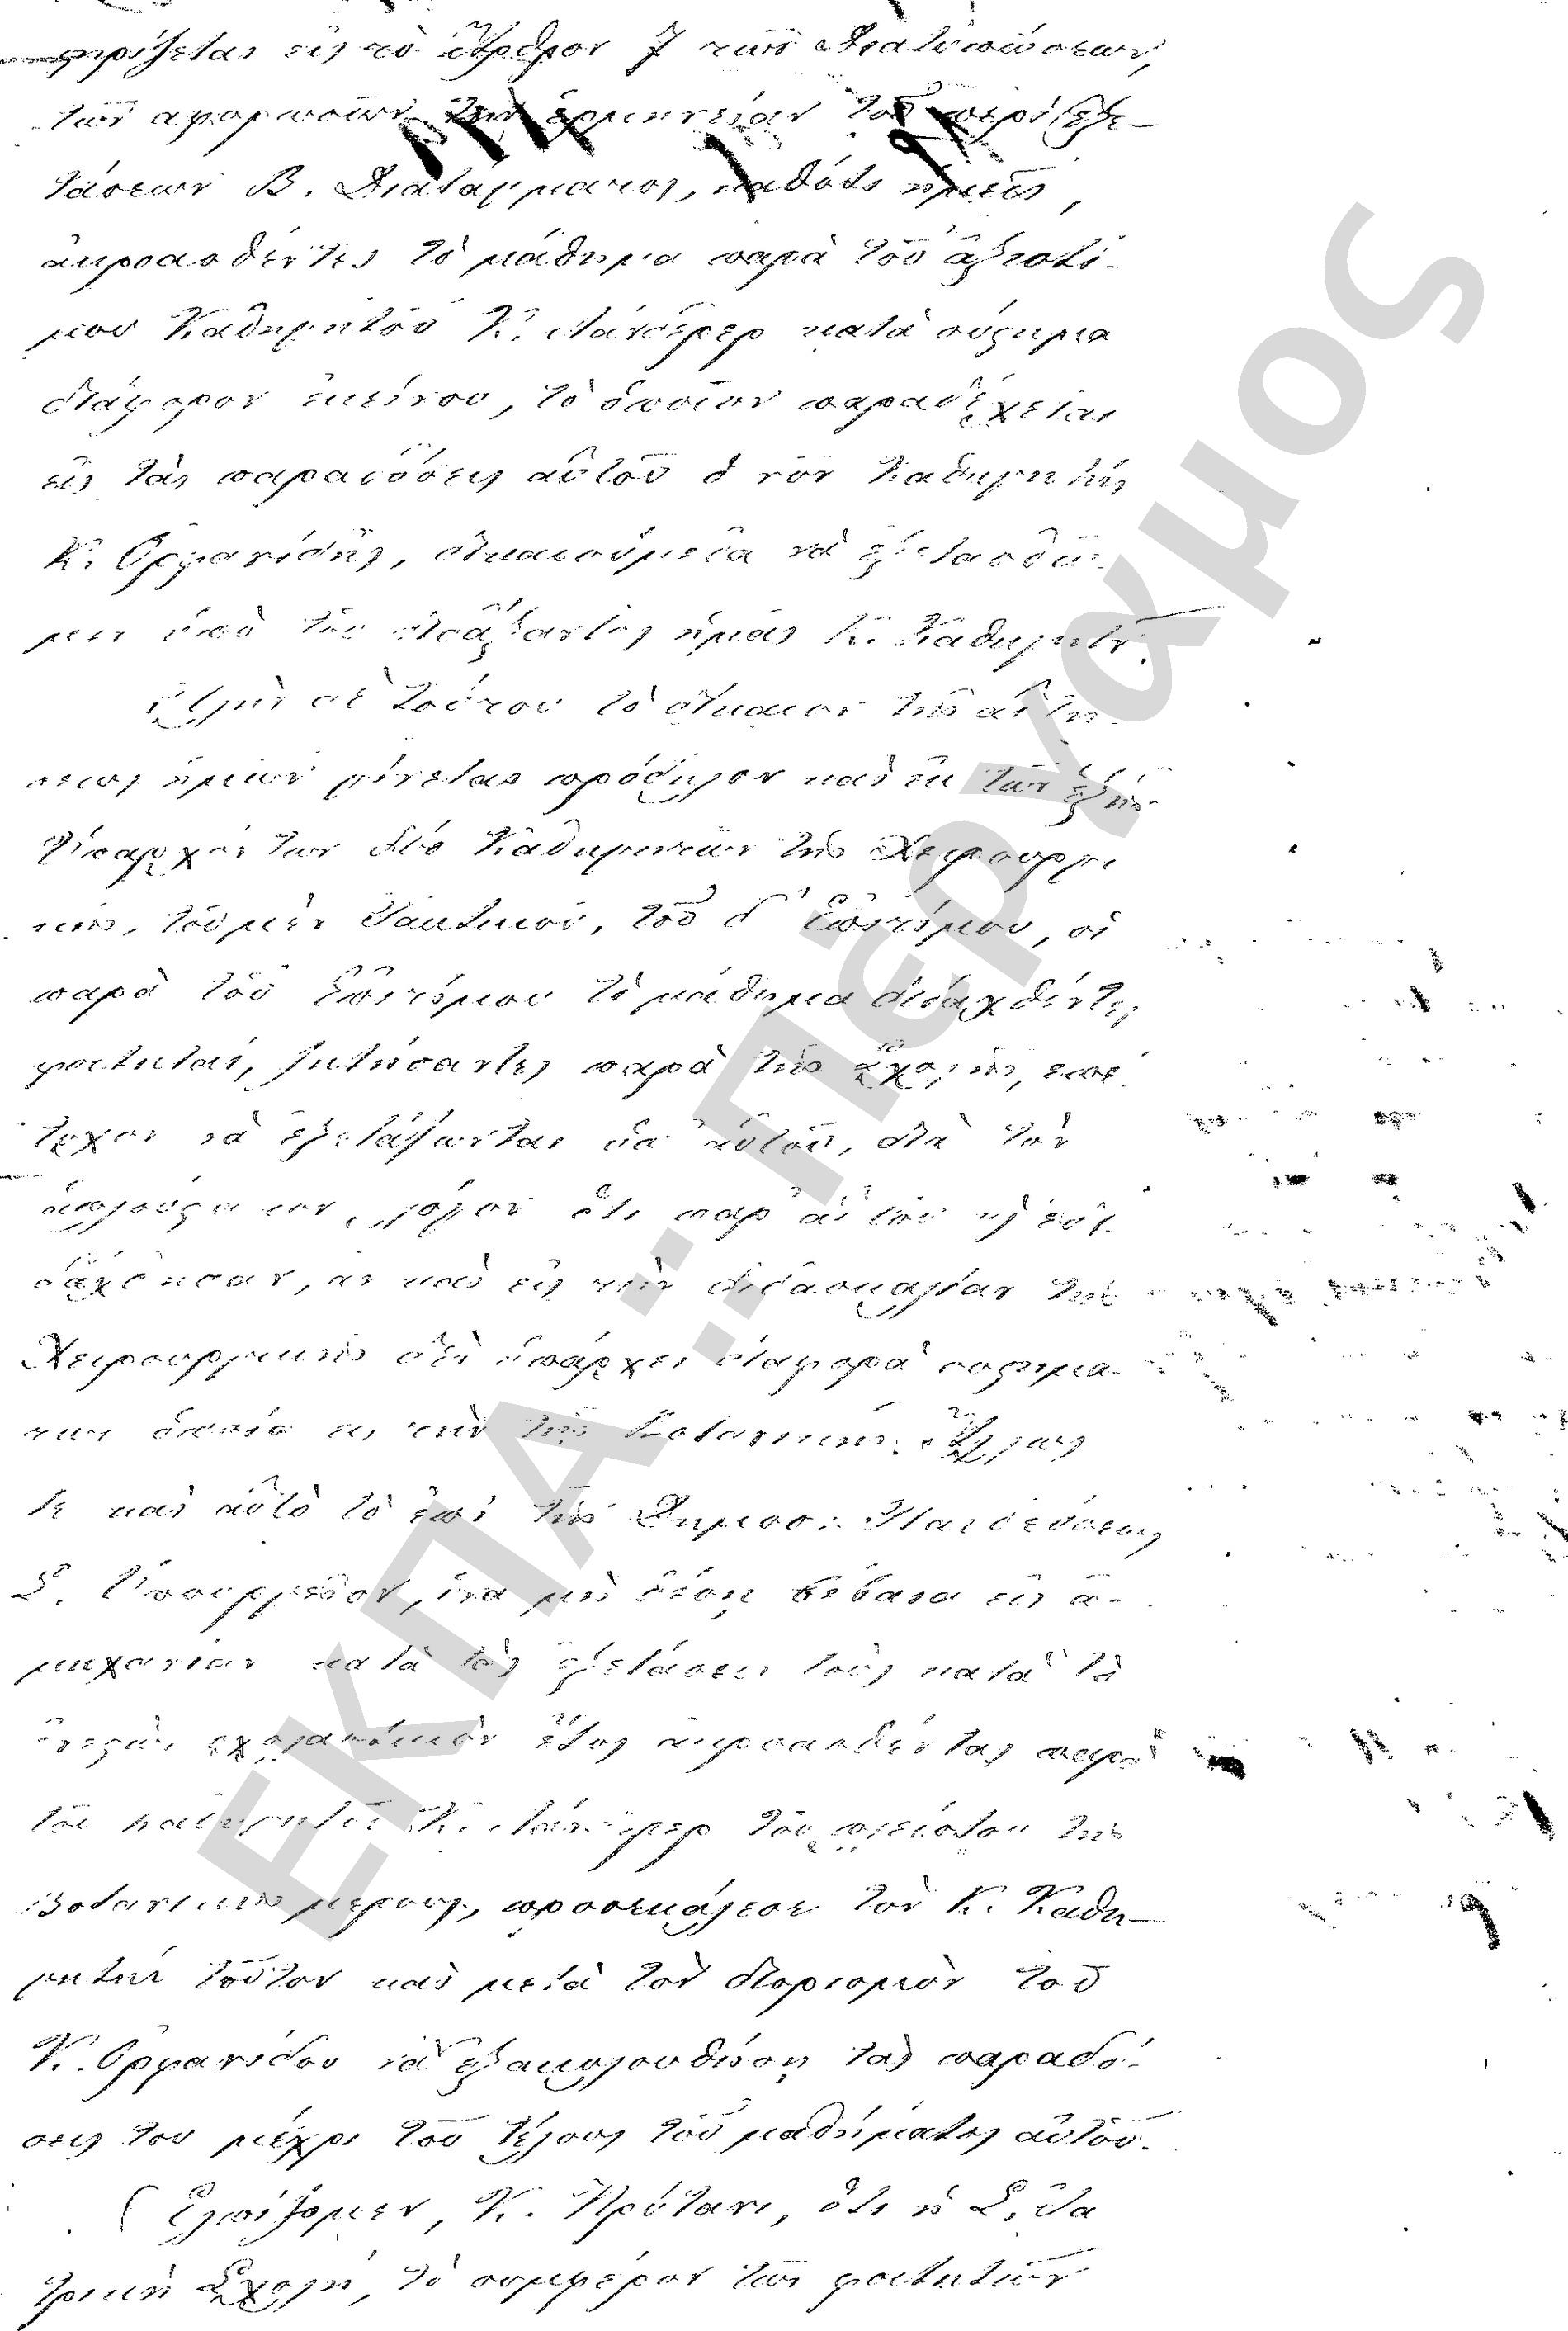 στηρίζεται εἰς τὸ Ἄρθρον 7 τῶν Διατυπώσεων,
τῶν ἀφορωσῶν τὴν ἑρμηνείαν τοῦ περὶ ἐξε-
τάσεων Β. Διατάγματος, καθότι ἡμεῖς,
ἀκροασθέντες τὸ μάθημα παρὰ τοῦ ἀξιοτί-
μου Καθηγητοῦ Κ. Λάνδερερ κατὰ σύστημα
διάφορον ἐκείνου, τὸ ὁποῖον παραδέχεται
εἰς τὰς παραδόσεις αὐτοῦ ὁ νῦν Καθηγητὴς
Κ. Ὀρφανίδης, δικαιούμεθα νὰ ἐξετασθῶ-
μεν ὑπὸ τοῦ διδάξαντος ἡμᾶς Κ. Καθηγητοῦ.
Πλὴν δὲ τούτου τὸ δίκαιον τῆς αἰτή-
σεως ἡμῶν γίνεται πρόδηλον καὶ ἐκ τῶν ἑξῆς·
Ὑπαρχόντων δύο Καθηγητῶν τῆς Χειρουργι
κῆς, τοῦ μὲν Τακτικοῦ, τοῦ δ' Ἐπιτίμου, οἱ
παρὰ τοῦ Ἐπιτίμου τὸ μάθημα διδαχθέντες
φοιτηταί, ζητήσαντες παρὰ τῆς Σχολῆς, ἐπέ-
τυχον νὰ ἐξετάζωνται ὑπ' αὐτοῦ, διὰ τὸν
ἁπλούστατον λόγον ὅτι παρ' αὐτοῦ ἐδι-
δάχθησαν, ἂν καὶ εἰς τὴν διδασκαλίαν τῆς
Χειρουργικῆς δὲν ὑπάρχει διαφορὰ συστημά-
των ὁποία εἰς τὴν τῆς Βοτανικῆς. Ἄλλως
τε καὶ αὐτὸ τὸ ἐπὶ τῆς Δημοσ: Παιδεύσεως
Σ. Ὑπουργεῖον, ἵνα μὴ θέσῃ βέβαια εἰς ἀ-
μηχανίαν κατὰ τὰς ἐξετάσεις τοὺς κατὰ τὸ
ἐνεστὼς σχολαστικὸν ἔτος ἀκροασθέντας παρὰ
τοῦ καθηγητοῦ Κ. Λάνδερερ τοῦ πλείστου τῆς
Βοτανικῆς μέρους, προσεκάλεσε τὸν Κ. Καθη-
γητὴν τοῦτον καὶ μετὰ τὸν διορισμὸν τοῦ
Κ. Ὀρφανίδου νὰ ἐξακολουθήσῃ τὰς παραδό-
σεις του μέχρι τοῦ τέλους τοῦ μαθήματος αὐτοῦ.
Ἐλπίζομεν, Κ. Πρύτανι, ὅτι ἡ Σ. Ἰα
τρικὴ Σχολή, τὸ συμφέρον τῶν φοιτητῶν
ΕΚΠΑ: Πέργαμος